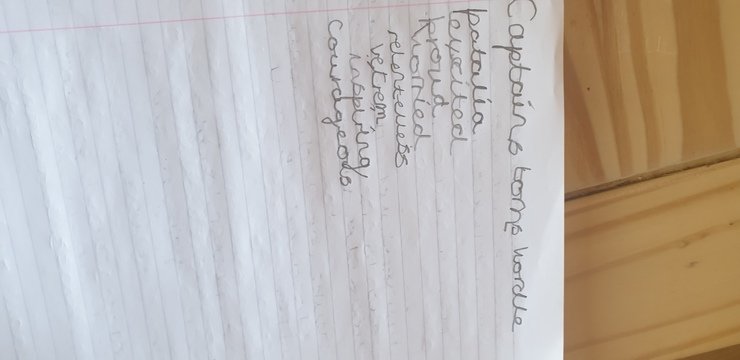 Captains toms wordle
patalia
excited
proud
worried
relenteness
vetrem
inspiring
courdgeods